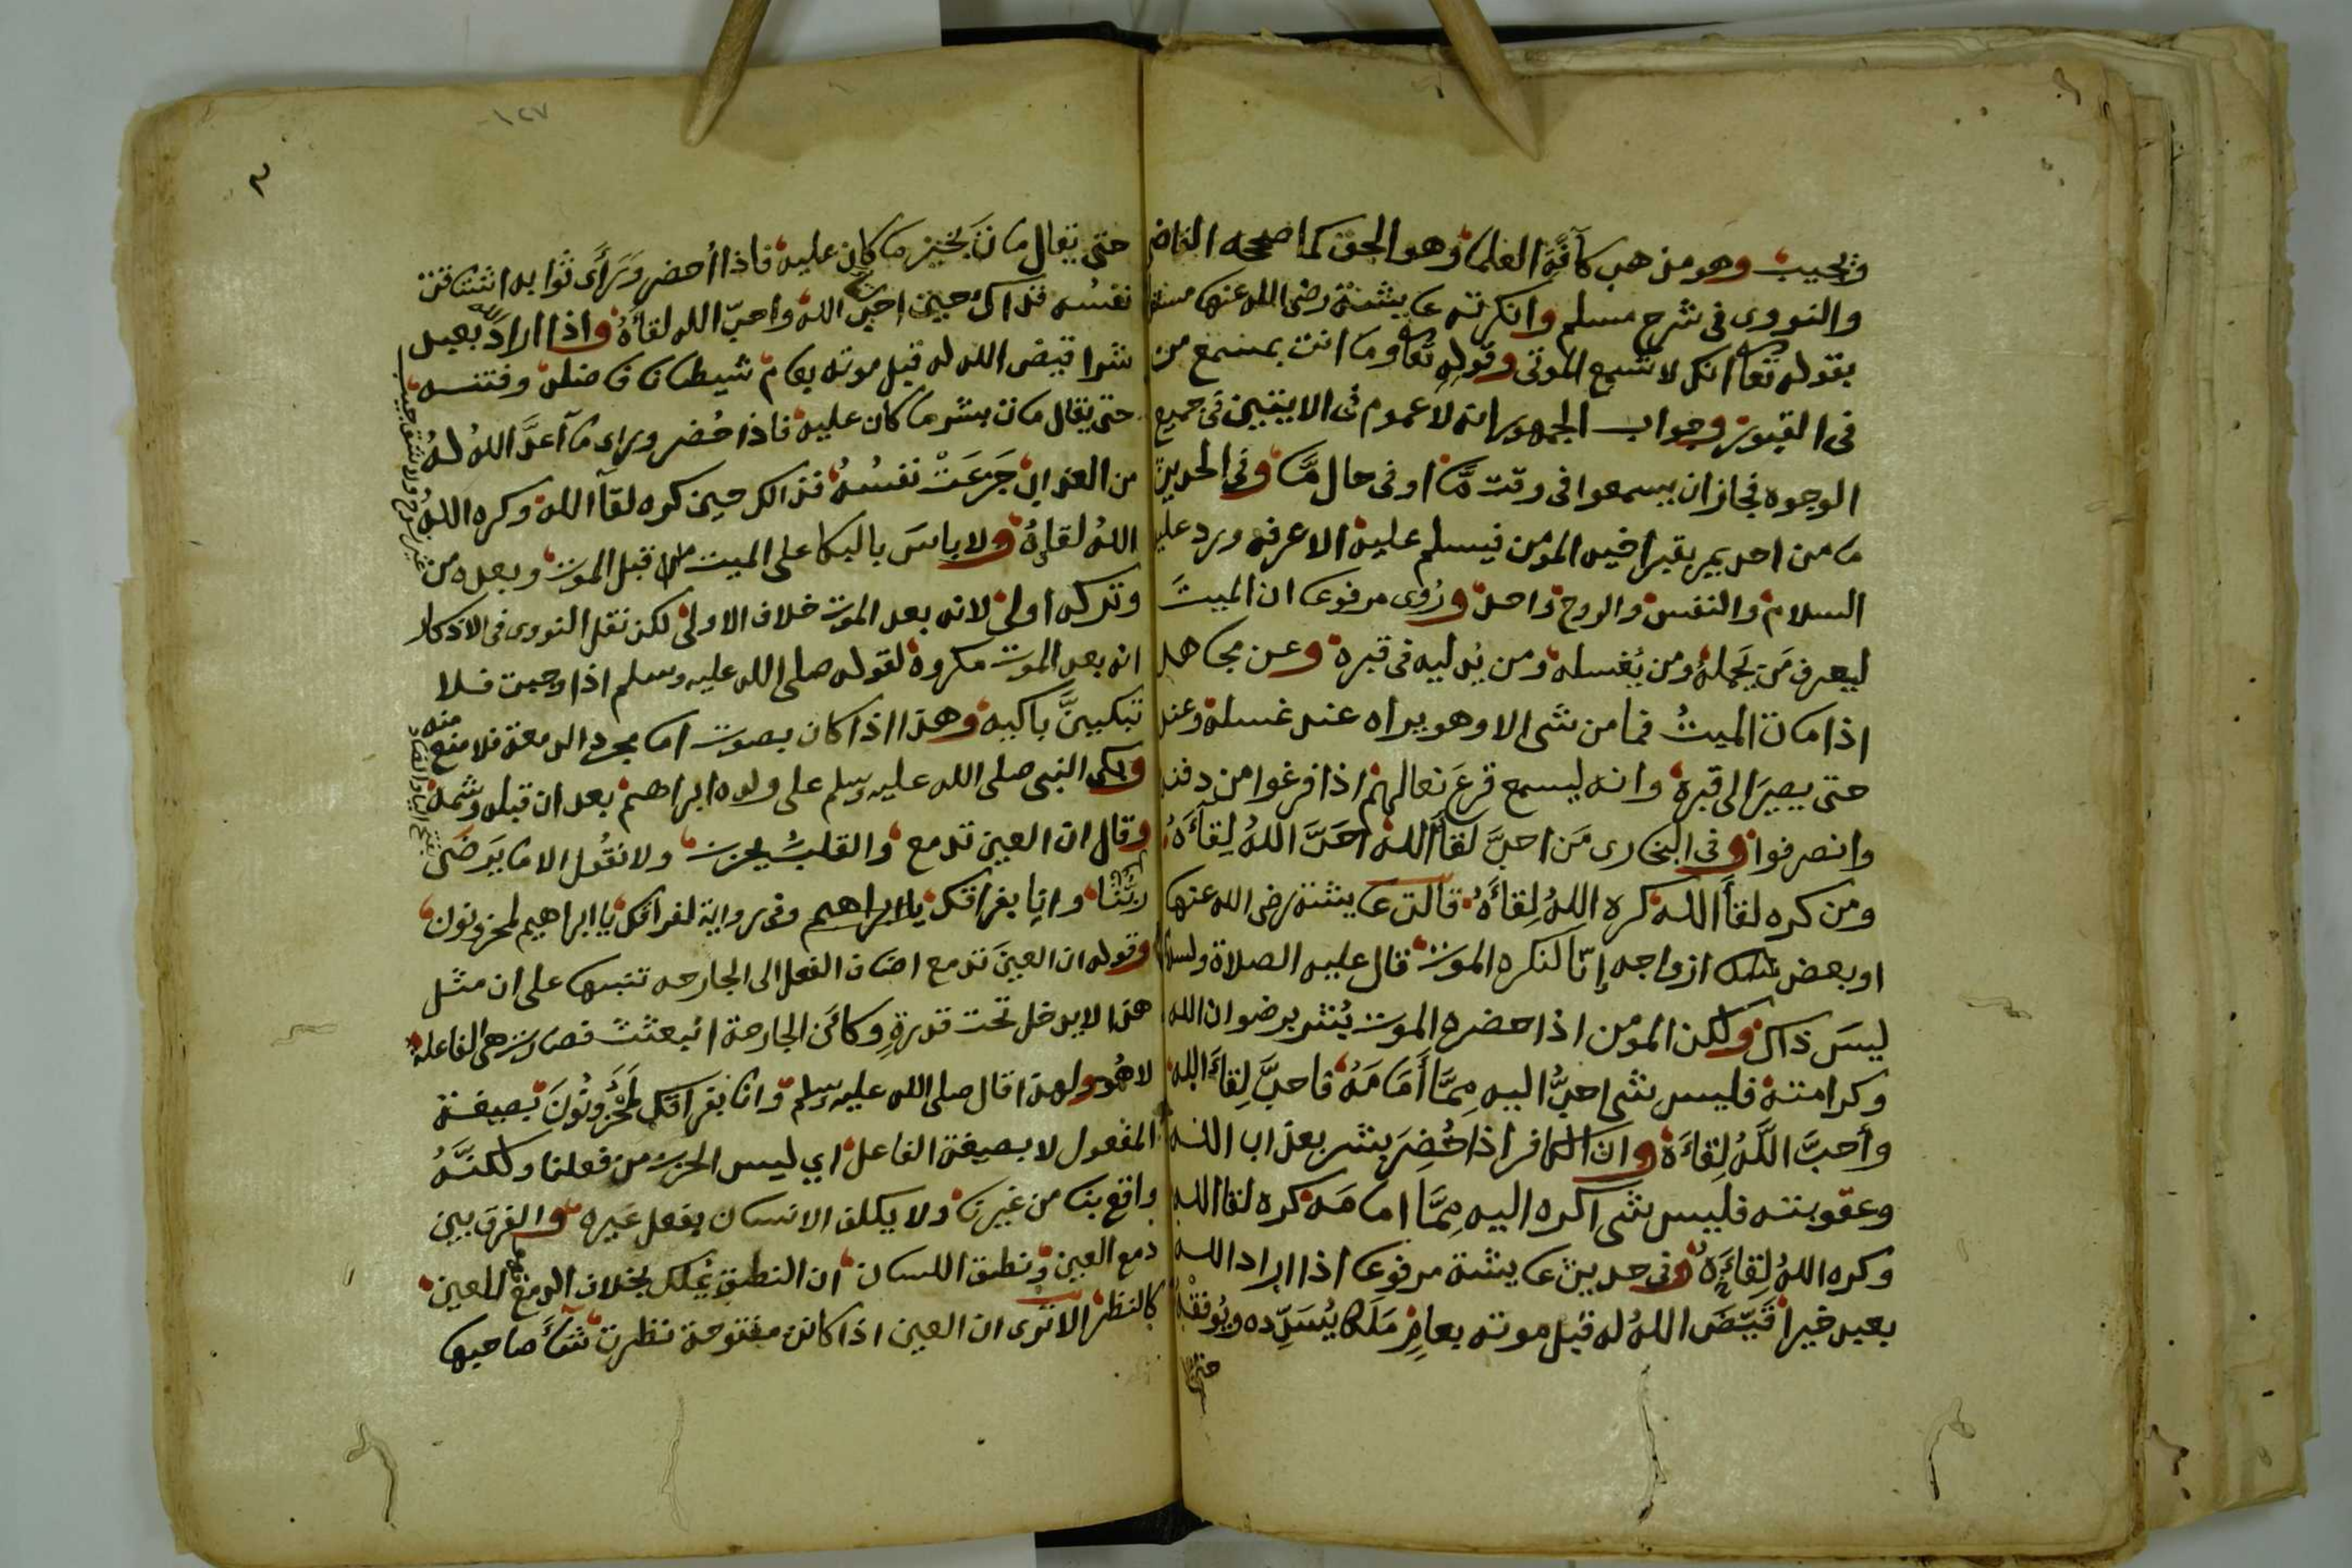 ويجيب وهو مذهب كآفَّة العلماء وهو الحق كما صححه القاضى
والنووى فى شرح مسلم وانكرته عايشة رضى الله عنها مستدلة
بقوله تعا انك لا تسمع الموتى وقوله تعا وما انت بمسمع من
فى القبور وجواب الجمهور انه لا عموم فى الايتين فى جميع
الوجوه فجاز ان يسمعوا فى وقت مَّا او فى حال مَّا وفى الحديث
ما من احد يمر بقبر اخيه المومن فيسلم عليه الا عرفه ورد عليه
السلام والنفس والروح واحد ورُوى مرفوعا ان الميتَ
ليعرف مَن يَحمله ومن يُغسله ومن يُدليه فى قبره وعن مجاهد
اذا مات الميتُ فما من شى الا وهو يراه عند غسله وعند
حتى يصيرَ الى قبره وانه ليسمع قرعَ نعالهم اذا فرغوا من دفنه
وانصرفوا وفى البخارى مَن احبَّ لقآ الله احَبَّ اللهُ لِقآءَهُ
ومن كره لقآ الله كره اللهُ لِقاءَهُ قالت عايشة رضى الله عنها
او بعض ازواجه إنّا لنكره الموت قال عليه الصلاة والسلام
ليسَ ذاك ولكن المومن اذا حضره الموت بُشر برضوان الله
وكرامته فليس شى احبُّ اليه مِمَّا أَمَامَهُ فاحبَّ لِقاءَ الله
وأحبَّ اللَّهُ لِقاءَهُ وان الكافر اذا حُضِرَ بشر بعذاب الله
وعقوبته فليس شى اكره اليه مِمَّا امامَه كره لقا الله
وكره اللهُ لِقاءَهُ وفى حديث عايشة مرفوعا اذا اراد الله
بعبد خيرا قَيَّضَ اللهُ له قبل موته بعامٍ مَلَكا يُسَدِّده ويُوفقه
حتى
١٢٧
٣
حتى يقال مات بَخيرِ ما كان عليه فاذا أحضر وَرَأى ثوابه اشتاقت
نفسُه فذاك حين احب الله واحبّ الله لقاءَهُ واذا اراد الله بعبد
شرا قيض الله له قبل موته بعام شيطانا فاضله وفتنه
حتى يقال مات بشر ما كان عليه فاذا حُضر وراى ما آعدَّ اللهُ لهُ
من العذاب جَزعَتْ نفسُهُ فذالك حين كره لقآ الله وكره اللهُ
اللهُ لقاءهُ ولا باسَ بالبكا على الميت قبل الموت وبعده من
غير نوح ولا شق جيب
وتركه اولى لانه بعد الموت خلاف الاولى لكن نقل النووى فى الاذكار
انه بعد الموت مكروه لقوله صلى الله عليه وسلم اذا وجبت فلا
تبكينَّ باكيه وهذا اذا كان بصوت اما مجرد الدمعة فلا منع منه
وبكى النبى صلى الله عليه وسلم على ولده ابراهيم بعد ان قبله وشمه
وقال ان العين تدمع والقلبُ يحزن ولا نقُول الا ما يَرضَى
بفتح اليا والضاد
ربُّنا وانا بفراقك يا ابراهيم وفى رواية لفراقك يا ابراهيم لمحزونون
وقوله ان العينَ تدمع اضاف الفعل الى الجارحه تنبيها على ان مثل
هذا لا يدخل تحت قدرةٍ وكانَ الجارحة انبعثت فصارت هى الفاعلة
لا هُو ولهذا قال صلى الله عليه وسلم وانا بفراقك لَمَحْزُونُونَ بصيغة
المفعول لا بصيغة الفاعل اي ليس الحزن من فعلنا ولكنَّهُ
واقع بنا من غيرنا ولا يكلف الانسان بفعل غيره والفرق بين
دمع العين ونطق اللسان ان النطق يُملك بخلاف الدمع للعين
كالنظر الا ترى ان العين اذا كانت مفتوحة نظرت شآءَ صاحبها